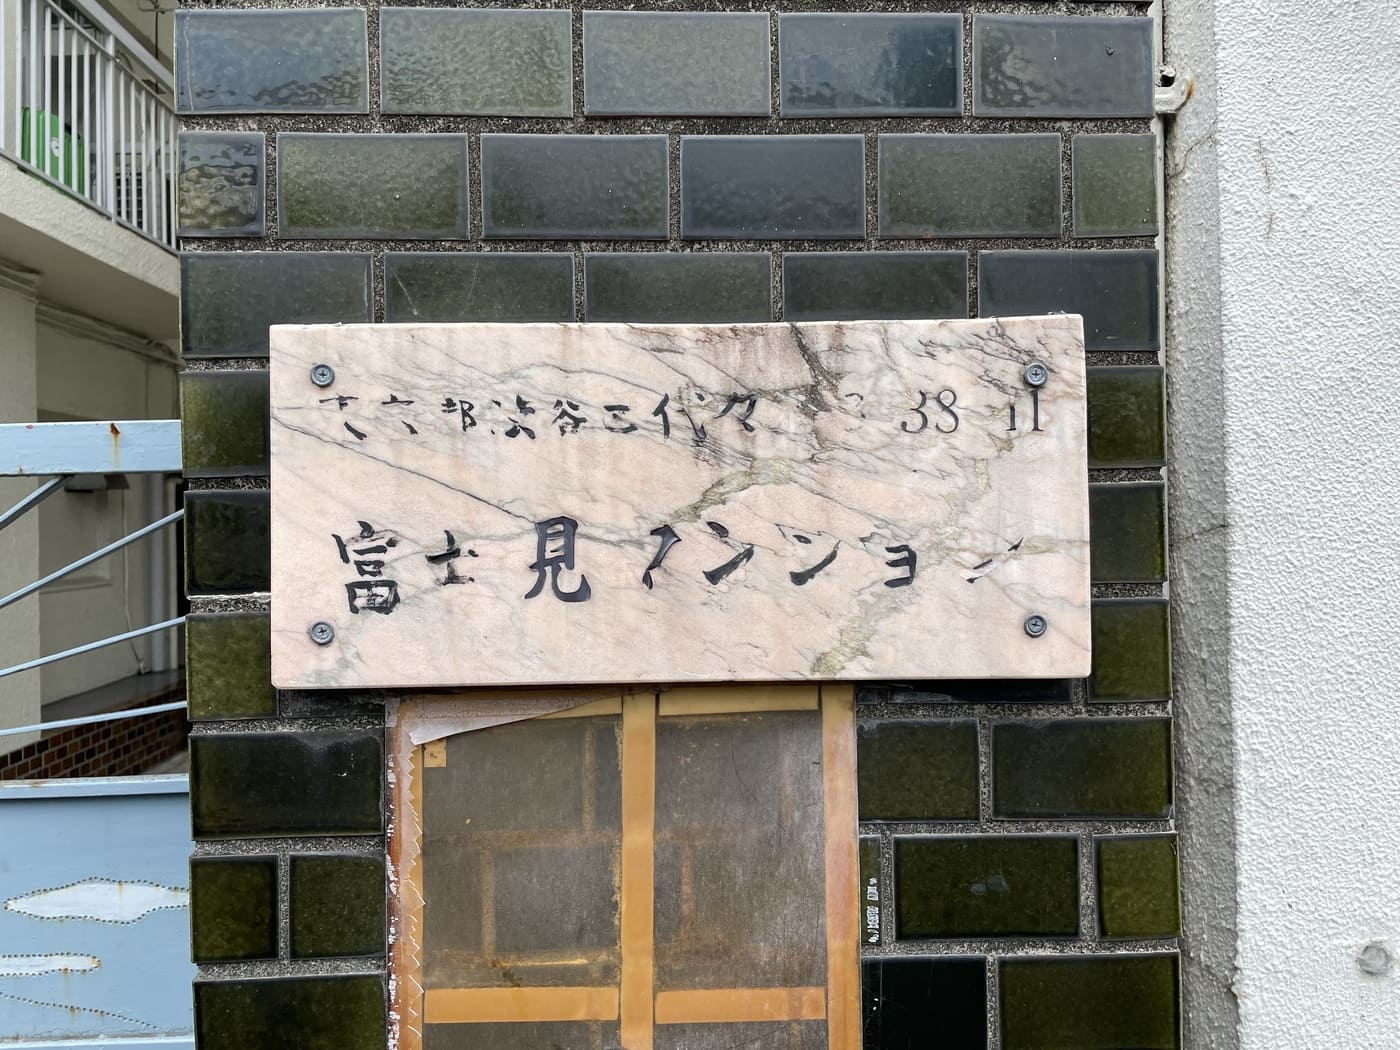 東京都渋谷区代々 3 38 11
富士見マンション